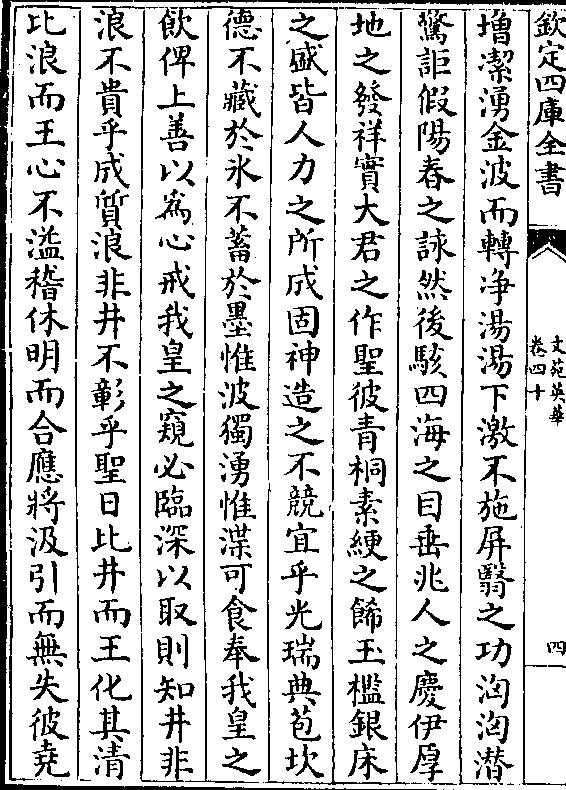 欽定四庫全書
文苑英華
卷四十
四
增潔湧金波而轉净湯湯下激不施屏翳之功洶洶潜
驚詎假陽春之詠然後駭四海之目垂兆人之慶伊厚
地之發祥實大君之作聖彼青桐素綆之餙玉檻銀床
之盛皆人力之所成固神造之不競宜乎光瑞典苞坎
德不藏於氷不蓄於墨惟波獨湧惟渫可食奉我皇之
飲俾上善以為心戒我皇之窺必臨深以取則知井非
浪不貴乎成質浪非井不彰乎聖日比井而王化其清
比浪而王心不溢稽休明而合應將汲引而無失彼堯